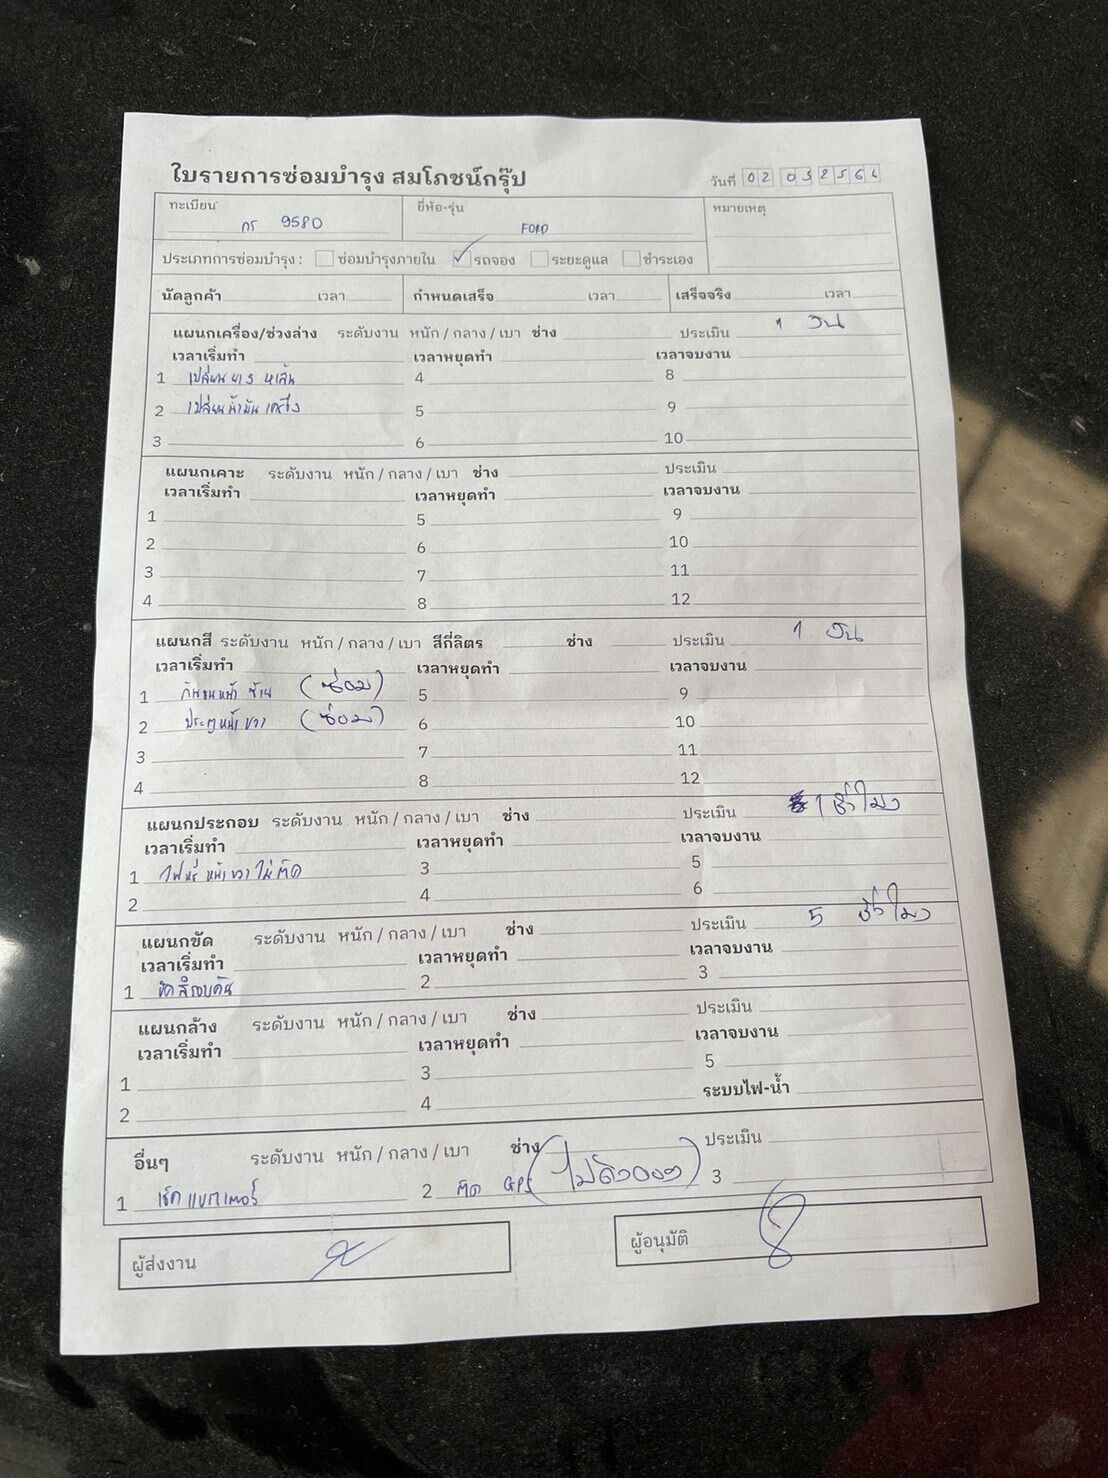 ใบรายการซ่อมบำรุง สมโภชน์กรุ๊ป วันที่ 02 03 256
ทะเบียน กร 9580 ยี่ห้อ-รุ่น FORD หมายเหตุ
ประเภทการซ่อมบำรุง : ซ่อมบำรุงภายใน ✓ รถจอง ระยะดูแล ชำระเอง
นัดลูกค้า เวลา กำหนดเสร็จ เวลา เสร็จจริง เวลา
แผนกเครื่อง/ช่วงล่าง ระดับงาน หนัก / กลาง / เบา ช่าง ประเมิน 1 วัน
เวลาเริ่มทำ เวลาหยุดทำ เวลาจบงาน
1 เปลี่ยนยาง 4 8
2 เปลี่ยนน้ำมันเครื่อง 5 9
3 6 10
แผนกเคาะ ระดับงาน หนัก / กลาง / เบา ช่าง ประเมิน
เวลาเริ่มทำ เวลาหยุดทำ เวลาจบงาน
1 5 9
2 6 10
3 7 11
4 8 12
แผนกสี ระดับงาน หนัก / กลาง / เบา สีกี่ลิตร ช่าง ประเมิน 1 วัน
เวลาเริ่มทำ เวลาหยุดทำ เวลาจบงาน
1 กันชนหน้าซ้าย (ซ่อม) 5 9
2 ประตูหน้าขวา (ซ่อม) 6 10
3 7 11
4 8 12
แผนกประกอบ ระดับงาน หนัก / กลาง / เบา ช่าง ประเมิน 1 ชั่วโมง
เวลาเริ่มทำ เวลาหยุดทำ เวลาจบงาน
1 ไฟหรี่หน้าขวาไม่ติด 3 5
2 4 6
แผนกขัด ระดับงาน หนัก / กลาง / เบา ช่าง ประเมิน 5 ชั่วโมง
เวลาเริ่มทำ เวลาหยุดทำ เวลาจบงาน
1 ขัดสีรอบคัน 2 3
แผนกล้าง ระดับงาน หนัก / กลาง / เบา ช่าง ประเมิน
เวลาเริ่มทำ เวลาหยุดทำ เวลาจบงาน
1 3 5
2 4 ระบบไฟ-น้ำ
อื่นๆ ระดับงาน หนัก / กลาง / เบา ช่าง ประเมิน
1 เช็คแบตเตอร์รี่ 2 ติด GPS (ไม่ต้อง) 3
ผู้ส่งงาน ผู้อนุมัติ